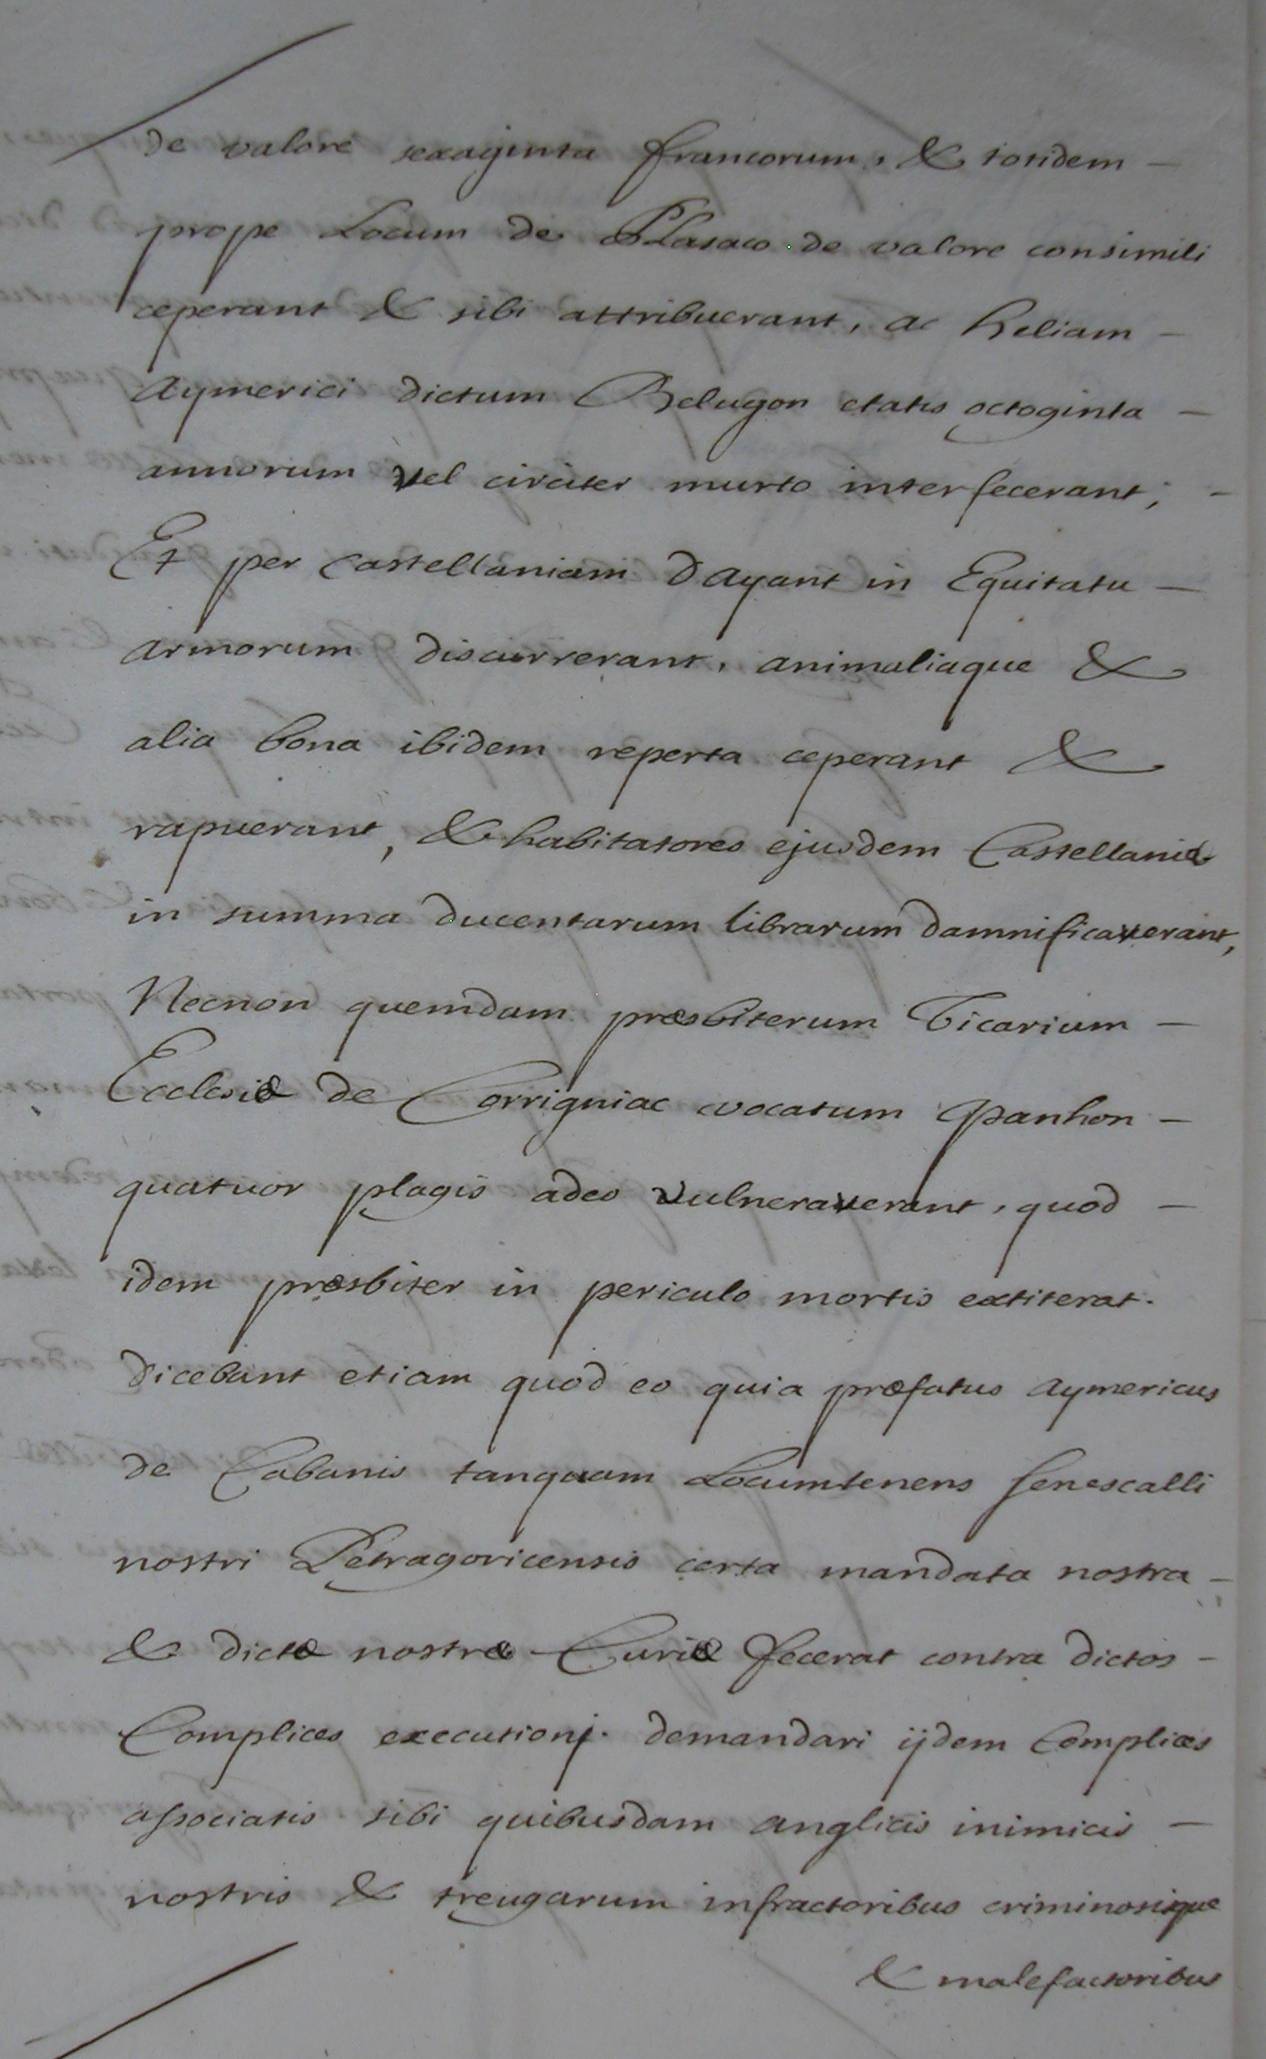 de valore sexaginta francorum, & totidem –
prope Locum de Plasaco de valore consimili
ceperant & sibi attribuerant, ac heliam –
Aymerici dictum Belugon etatis octoginta –
annorum vel circiter murto interfecerant; –
Et per Castellaniam D'Ayant in Equitatu –
armorum discurrerant, animaliaque &
alia bona ibidem reperta ceperant &
rapuerant, & habitatores ejusdem Castellaniæ
in summa ducentarum librarum damnificaverant,
Necnon quemdam præsbiterum Vicarium –
Ecclesiæ de Corrigniac vocatum Panhon –
quatuor plagis adeo vulneraverant, quod –
idem præsbiter in periculo mortis extiterat.
Dicebant etiam quod eo quia præfatus Aymericus
de Cabanis tanquam Locumtenens Senescalli
nostri Petragoricensis certa mandata nostra –
& dictæ nostræ Curiæ fecerat contra dictos –
Complices executionj demandari ijdem Complices
associatis sibi quibusdam anglicis inimicis –
nostris & treugarum infractoribus criminosisque
& malefactoribus